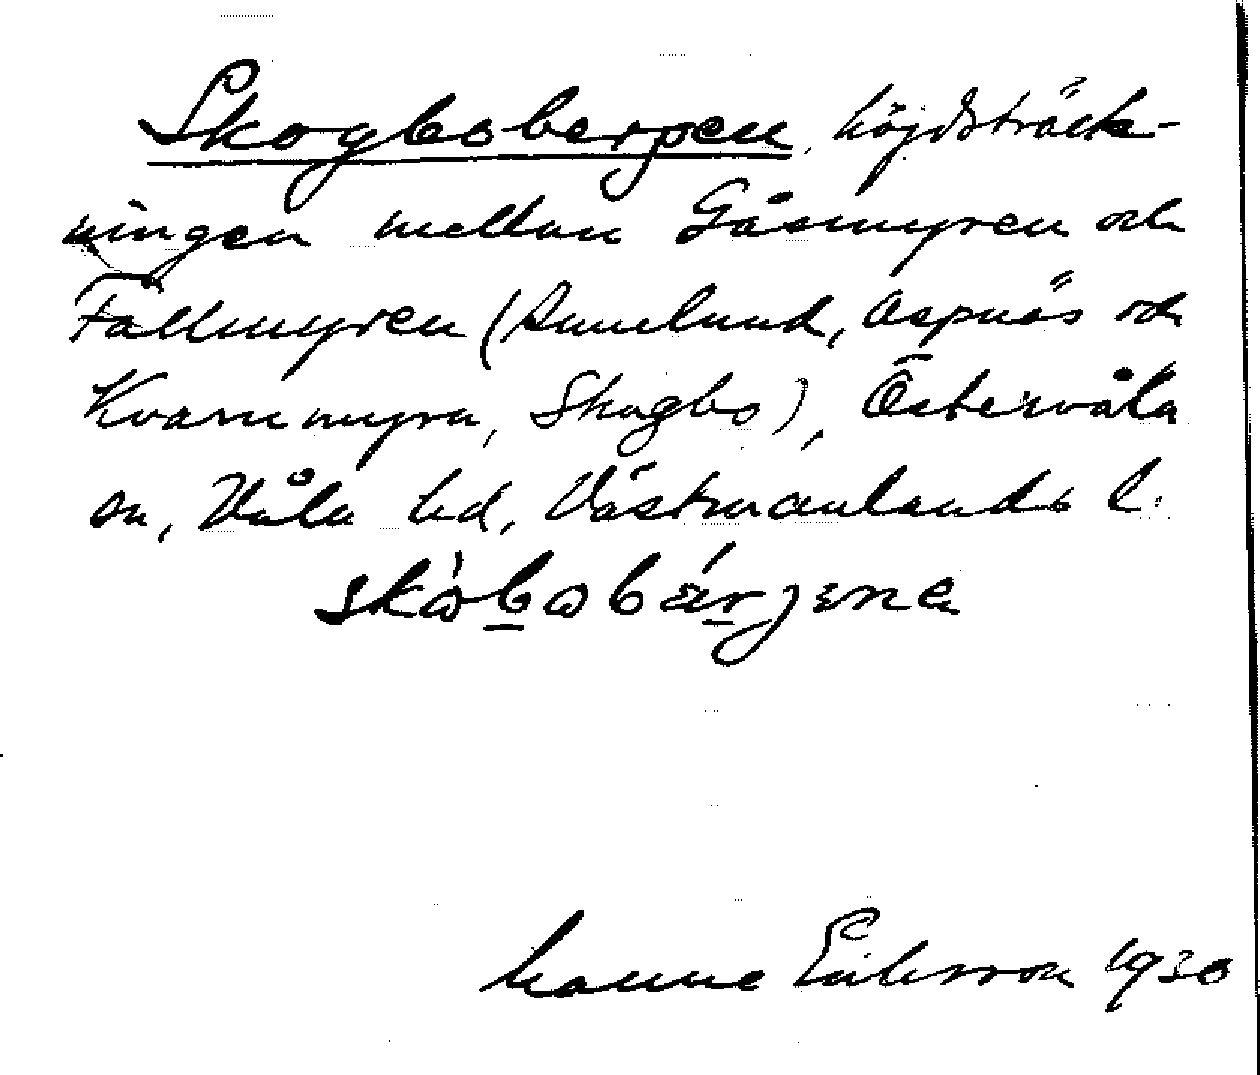 Skogbobergen, höjdsträck-
ningen mellan Gåsmyren och
Fallmyren (Annelund, Aspnäs och
Kvarnmyra, Skogbo), Östervåla
sn, Våla hd, Västmanlands l.
skò̀bωbárjεna
Manne Eriksson 1930